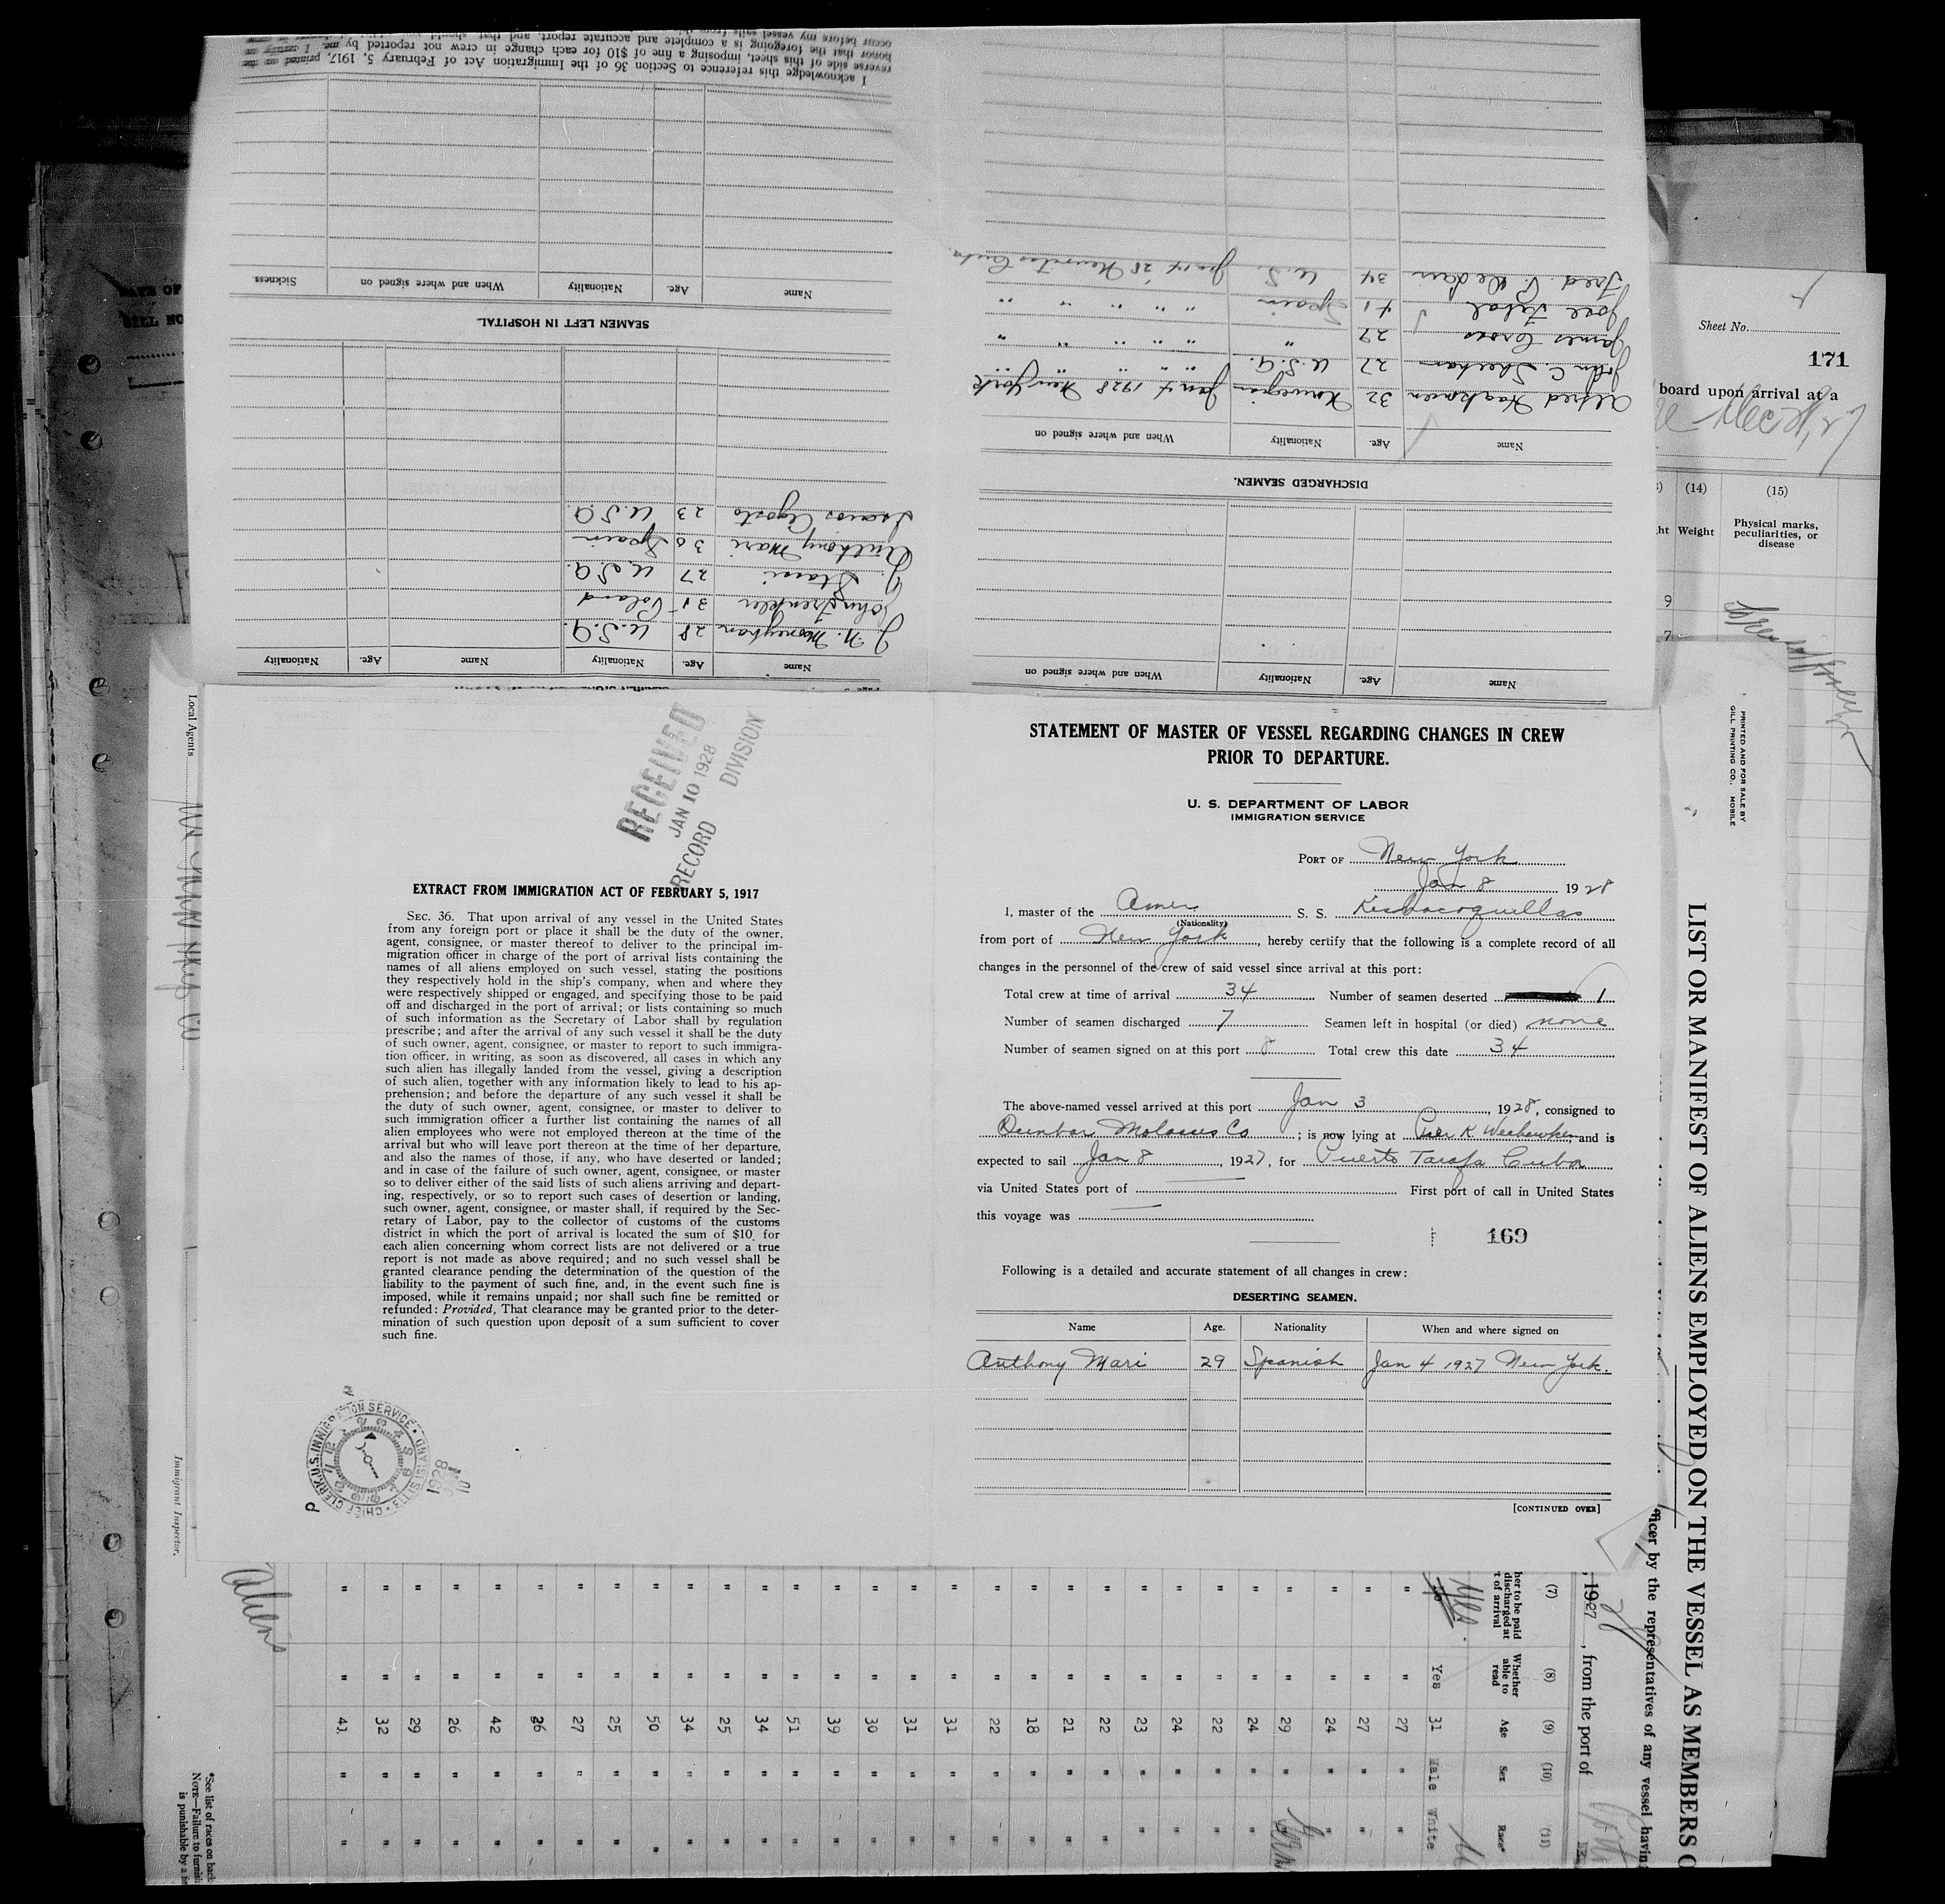 I acknowledge this reference to Section 36 of the Immigration Act of February 5, 1917, printed on the
reverse side of this sheet, imposing a fine of $10 for each change in crew not reported by me. I certify on
honor that the foregoing is a complete and accurate report, and that should
occur before my vessel sails from this
Name Age. Nationality When and where signed on Sickness
SEAMEN LEFT IN HOSPITAL.
Name Age. Nationality Name Age. Nationality
J. N. Mooneyhan 28 U.S.A.
John Frenkler 31 Poland
J. Stasse 27 U.S.A.
Anthony Mari 30 Spain
Agosto 23 U.S.A.
Name Age. Nationality When and where signed on
DISCHARGED SEAMEN.
Name Age. Nationality When and where signed on
Alfred Haakonsen 32 Norwegian Jan 4 1928 New York
John C. Sheehan 27 U.S.A. " " " "
James 29 " " " " "
Jose 41 Spain " " " "
Fred. V. 34 U.S. Jan 14 28 Cuba
Sheet No.
171
board upon arrival at a
(14) (15)
Weight Physical marks,
peculiarities, or
disease
9
7
RECEIVED
JAN 10 1928
RECORD DIVISION
EXTRACT FROM IMMIGRATION ACT OF FEBRUARY 5, 1917
SEC. 36. That upon arrival of any vessel in the United States
from any foreign port or place it shall be the duty of the owner,
agent, consignee, or master thereof to deliver to the principal im-
migration officer in charge of the port of arrival lists containing the
names of all aliens employed on such vessel, stating the positions
they respectively hold in the ship's company, when and where they
were respectively shipped or engaged, and specifying those to be paid
off and discharged in the port of arrival; or lists containing so much
of such information as the Secretary of Labor shall by regulation
prescribe; and after the arrival of any such vessel it shall be the duty
of such owner, agent, consignee, or master to report to such immigra-
tion officer, in writing, as soon as discovered, all cases in which any
such alien has illegally landed from the vessel, giving a description
of such alien, together with any information likely to lead to his ap-
prehension; and before the departure of any such vessel it shall be
the duty of such owner, agent, consignee, or master to deliver to
such immigration officer a further list containing the names of all
alien employees who were not employed thereon at the time of the
arrival but who will leave port thereon at the time of her departure,
and also the names of those, if any, who have deserted or landed;
and in case of the failure of such owner, agent, consignee, or master
so to deliver either of the said lists of such aliens arriving and depart-
ing, respectively, or so to report such cases of desertion or landing,
such owner, agent, consignee, or master shall, if required by the Sec-
retary of Labor, pay to the collector of customs of the customs
district in which the port of arrival is located the sum of $10 for
each alien concerning whom correct lists are not delivered or a true
report is not made as above required; and no such vessel shall be
granted clearance pending the determination of the question of the
liability to the payment of such fine, and, in the event such fine is
imposed, while it remains unpaid; nor shall such fine be remitted or
refunded: Provided, That clearance may be granted prior to the deter-
mination of such question upon deposit of a sum sufficient to cover
such fine.
CHIEF CLERK, U.S. IMMIGRATION SERVICE ELLIS ISLAND
1928
STATEMENT OF MASTER OF VESSEL REGARDING CHANGES IN CREW
PRIOR TO DEPARTURE.
U. S. DEPARTMENT OF LABOR
IMMIGRATION SERVICE
PORT OF New York
Jan 8 1928
I, master of the Amer S. S. Kishacoquillas
(Nationality)
from port of New York, hereby certify that the following is a complete record of all
changes in the personnel of the crew of said vessel since arrival at this port:
Total crew at time of arrival 34 Number of seamen deserted 1
Number of seamen discharged 7 Seamen left in hospital (or died) none
Number of seamen signed on at this port 8 Total crew this date 34
The above-named vessel arrived at this port Jan 3, 1928, consigned to
Dunbar Molasses Co; is now lying at Pier K Weehawken, and is
expected to sail Jan 8, 1927, for Puerto Tarafa Cuba
via United States port of First port of call in United States
this voyage was
169
Following is a detailed and accurate statement of all changes in crew:
DESERTING SEAMEN.
Name Age. Nationality When and where signed on
Anthony Mari 29 Spanish Jan 4 1927 New York.
[CONTINUED OVER]
PRINTED AND FOR SALE BY
GILL PRINTING CO., MOBILE
LIST OR MANIFEST OF ALIENS EMPLOYED ON THE VESSEL AS MEMBERS O
fficer by the representatives of any vessel having
, 1927, from the port of
(7) (8) (9) (10) (11)
her to be paid
discharged at
t of arrival
Whether
able to
read
Age Sex Race*
Yes Yes 31 Male White
" " 27 " "
" " 27 " "
" " 24 " "
" " 29 " "
" " 24 " "
" " 22 " "
" " 24 " "
" " 23 " "
" " 22 " "
" " 21 " "
" " 18 " "
" " 22 " "
" " 31 " "
" " 31 " "
" " 30 " "
" " 39 " "
" " 51 " "
" " 34 " "
" " 25 " "
" " 34 " "
" " 50 " "
" " 25 " "
" " 27 " "
" " 26 " "
" " 42 " "
" " 26 " "
" " 29 " "
" " 32 " "
" " 41 " "
Aliens
Local Agents
Immigrant Inspector.
*See list of races on back
NOTE—Failure to furnis
is punishable by a